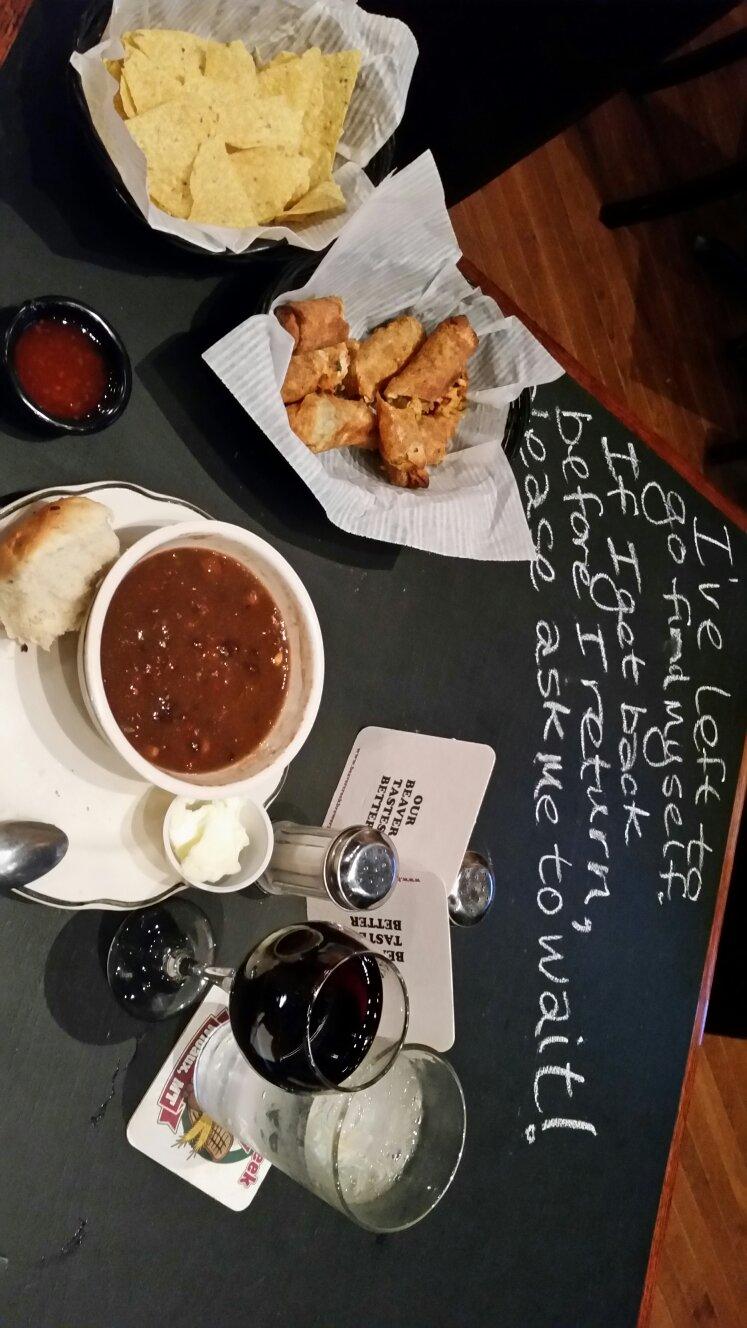 I've left to
go find myself.
If I get back
before I return,
please ask me to wait!
OUR
BEAVER
TASTES
BETTER
TASTES
BETTER
WIBAUX, MT
eek